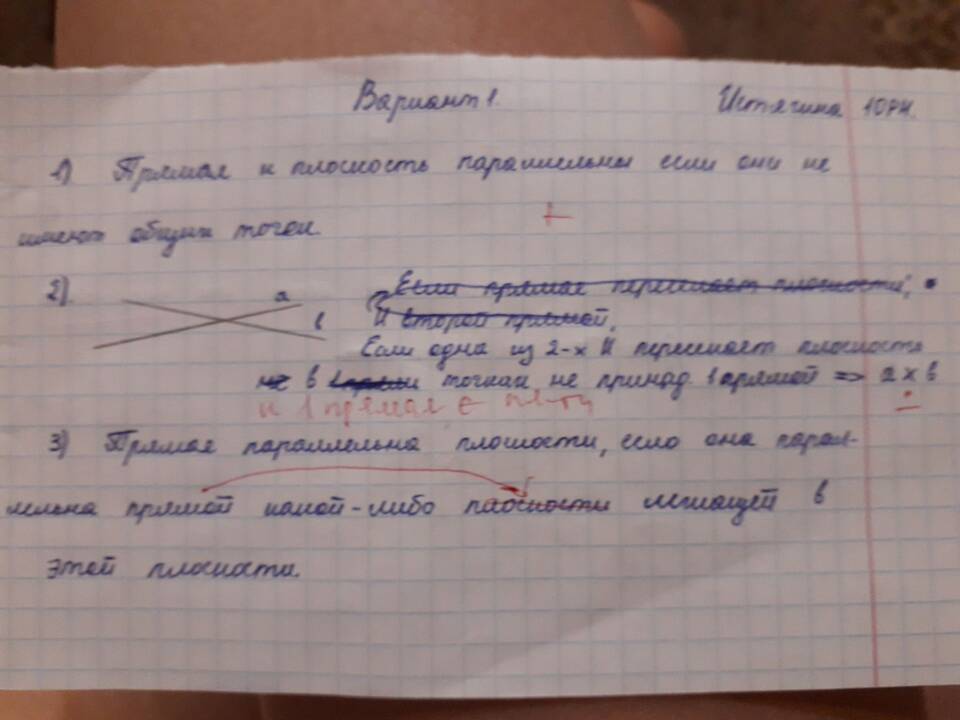 Вариант 1. Истягина 10РН.
1) Прямая и плоскость параллельны если они не
имеют общих точек.
+
2). a Если прямая пересекает плоскости,
в И второй прямой,
Если одна из 2-х И пересекает плоскость
не в точках не принад. 1 прямой => a x в
и 1 прямая ∈ пл-ти
3) Прямая параллельна плоскости, если она парал-
лельна прямой какой-либо плоскости лежащей в
этой плоскости.